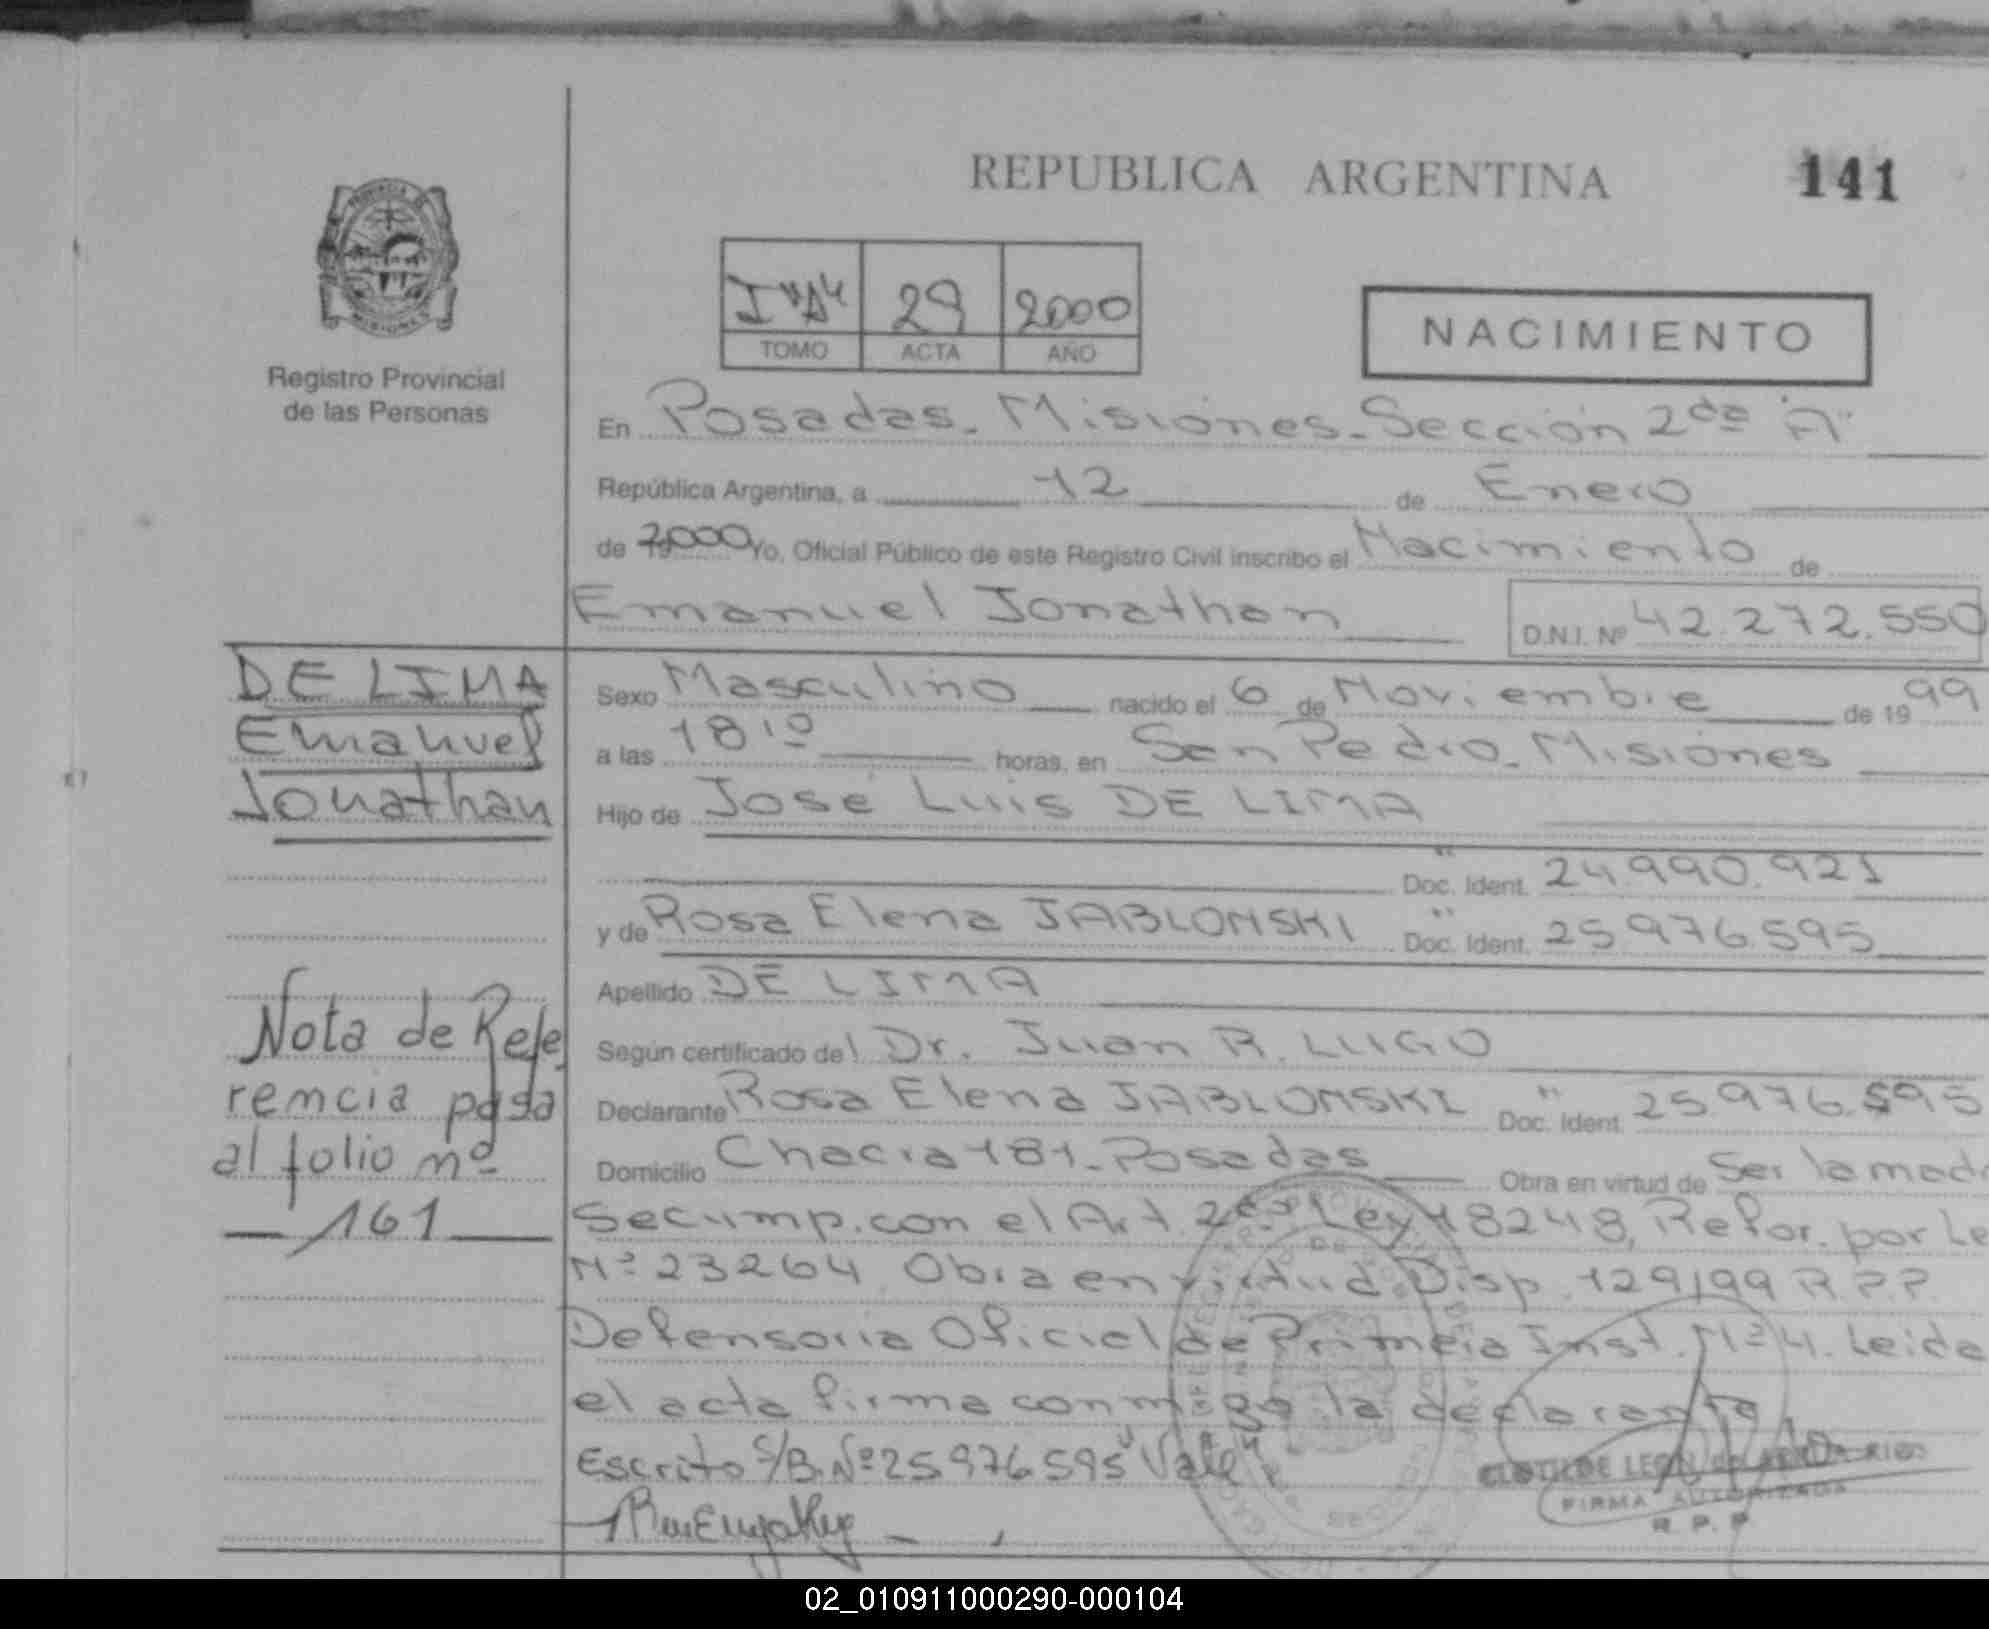 REPUBLICA ARGENTINA 141
PROVINCIA DE MISIONES
Registro Provincial
de las Personas
I "A" 29 2000
TOMO ACTA AÑO
NACIMIENTO
En Posadas - Misiones - Sección 2da "A"
República Argentina, a 12 de Enero
de 2000 Yo, Oficial Público de este Registro Civil inscribo el Nacimiento de
Emanuel Jonathan D.N.I. Nº 42.272.550
DE LIMA
Emanuel
Jonathan
Sexo Masculino nacido el 6 de Noviembre de 1999
a las 18,10 horas, en San Pedro - Misiones
Hijo de José Luis DE LIMA
" Doc. Ident. 24.990.921
y de Rosa Elena JABLONSKI " Doc. Ident. 25.976.595
Apellido DE LIMA
Según certificado del Dr. Juan R. LUGO
Declarante Rosa Elena JABLONSKI " Doc. Ident. 25.976.595
Domicilio Chacra 181 - Posadas Obra en virtud de Ser la mad
Nota de Refe
rencia pasa
al folio nº
161
Se cump. con el Art. 2do Ley 18248, Refor. por Le
Nº 23264. Obra en virtud Disp. 129/99 R.P.P.
Defensoria Oficial de Primera Inst. Nº 4. Leida
el acta firma conmigo la declarante
Escrito S/B. Nº 25976595 "Vale"
FIRMA AUTORIZADA
R. P. P.
02_010911000290-000104